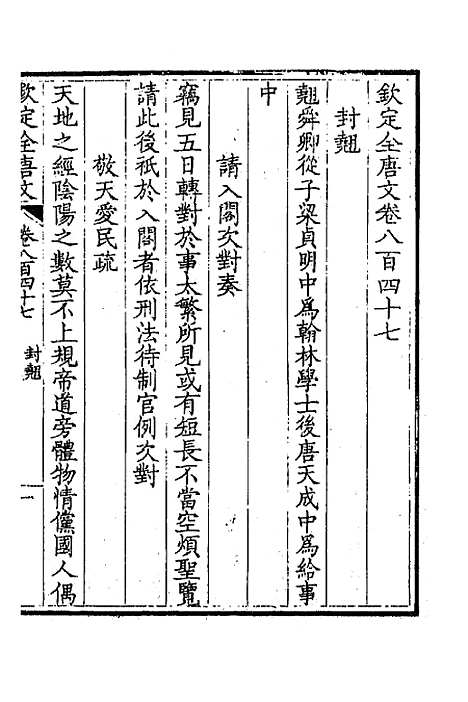 欽定全唐文卷八百四十七
封翹
翹舜卿從子梁貞明中爲翰林學士後唐天成中爲給事
中
請入閣次對奏
竊見五日轉對於事太繁所見或有短長不當空煩聖覽
請此後祇於入閣者依刑法待制官例次對
敬天愛民疏
天地之經陰陽之數莫不上規帝道旁體物情儻國人偶
欽定全唐文 卷八百四十七 封翹 一